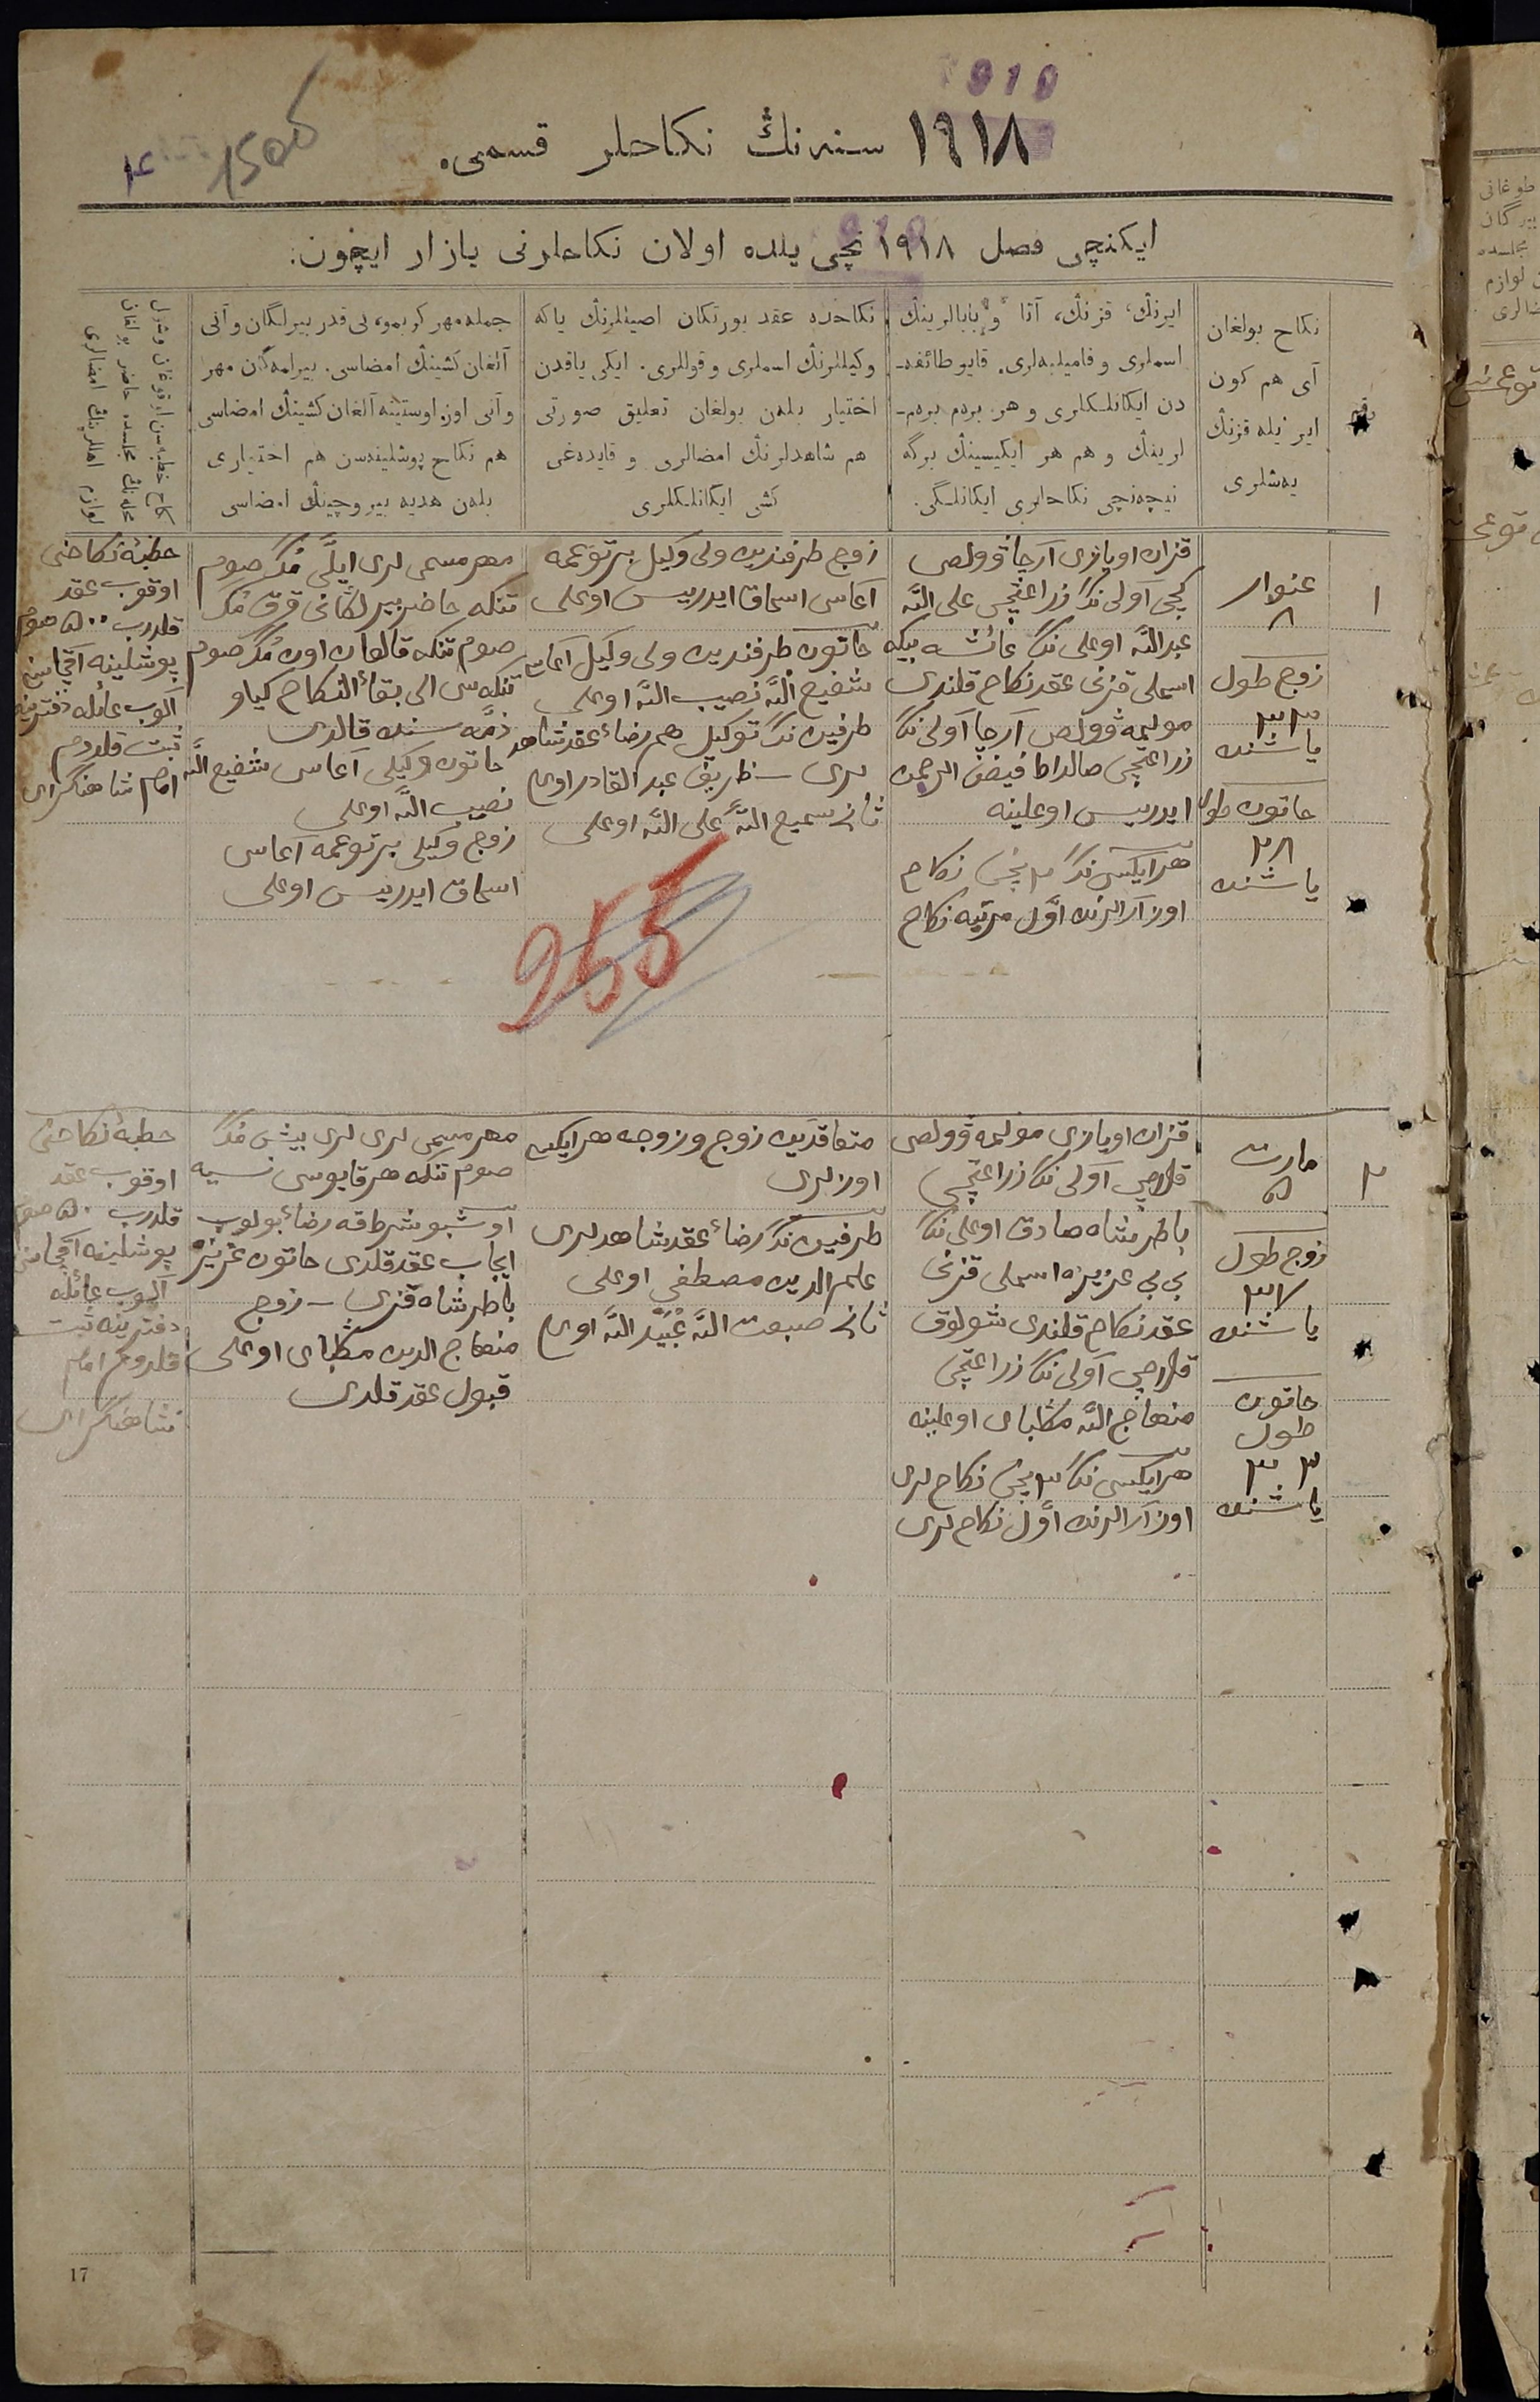 1918
١٩١٨ سنه نڭ نكاحلر قسمی.
1500
ایكنچی فصل ١٩١٨ نچی یلده اولان نكاحلرنی یازار ایچون:
رقم
نكاح بولغان
آی هم كون
ایر ایله قزنڭ
یه‌شلری
ایرنڭ، قزنڭ، آتا و بابالرینڭ
اسملری و فامیلیه‌لری. قایو طائفه‌ـ
دن ایكانلكلری و هر بردم بردم‌ـ
لرینڭ و هم هر ایكیسینڭ برگه
نیچه‌نچی نكاحلری ایكانلگی.
نكاحده عقد یورتكان اصیللرنڭ یاكه
وكیللرنڭ اسملری و قوللری. ایكی یاقدن
اختیار بلەن بولغان تعلیق صورتی
هم شاهدلرنڭ امضالری و قایده‌غی
كشی ایكانلكلری
جمله مهر كریمو، نی قدر بیرلگان و آنی
آلغان كشینڭ امضاسی. بیرلمه‌گان مهر
و آنی اوز اوستینه آلغان كشینڭ امضاسی
هم نكاح پوشلینه‌سن هم اختیاری
بلەن هدیه بیروچینڭ امضاسی
١
غنوار
٨
زوج طول
٣٣
یاشنده
خاتون طول
٢٨
یاشنده
قزان اویازی آرچا ڤولص
كچی آولی نڭ زراعتچی علی الله
عبدالله اوغلی نڭ عائشه بیكه
اسملی قزنی عقد نكاح قلندی
مولیمه ڤولص آرچا آولی نڭ
زراعتچی صالداط فیض الرحمن
ایدریس اوغلینه
هر ایكسی نڭ ٢ نچی نكاح
اوز آرالرنده اوّل مرتبه نكاح
زوج طرفندین ولی وكیل برتوغمه
آغاسی اسحاق ایدریس اوغلی
خاتون طرفندین ولی وكیل آغاسی
شفیع الله نصیب الله اوغلی
طرفین نڭ توكیل هم رضاء عقد شاهد
لری ـ ظریف عبد القادر اوغلی
ثانی سمیع الله علی الله اوغلی
مهر مسمی لری ایللی مڭ صوم
تنكه حاضر بیرلگانی قرق مڭ
صوم تنكه قالغان اون مڭ صوم
تنكه سی الی بقاء النكاح كیاو
ذمه سنده قالدی
خاتون وكیلی آغاسی شفیع الله
نصیب الله اوغلی
زوج وكیلی برتوغمه آغاسی
اسحاق ایدریس اوغلی
خطبهٔ نكاحنی
اوقوب عقد
قلدرب ٥٠٠ صوم
پوشلینه آقچاسن
آلوب عائله دفترینه
ثبت قلدوم
امام شاهنگرای
255
٢
مارت
٥
زوج طول
٣٧
یاشنده
خاتون
طول
٣٠
یاشنده
قزان اویازی مولیمه ڤولص
قلاچی آولی نڭ زراعتچی
باطرشاه صادق اوغلی نڭ
بی بی عزیزه اسملی قزنی
عقد نكاح قلندی شولوق
قلاچی آولی نڭ زراعتچی
منهاج الله مڭلبای اوغلینه
هر ایكسی نڭ ٢ نچی نكاح لری
اوز آرالرنده اوّل نكاح لری
متعاقدین زوج و زوجه هر ایكسی
اوزلری
طرفین نڭ رضاء عقد شاهدلری
علم الدین مصطفی اوغلی
ثانی صبعت الله عبید الله اوغلی
مهر مسمی لری بیش مڭ
صوم تنكه هر قایوسی نسیه
اوشبو شرطقه رضاء بولوب
ایجاب عقد قلدی خاتون عزیزه
باطرشاه قزی ـ زوج
منهاج الدین مڭلبای اوغلی
قبول عقد قلدی
خطبهٔ نكاحنی
اوقوب عقد
قلدرب ٥٠ صوم
پوشلینه آقچاسن
آلوب عائله
دفترینه ثبت
قلدوم امام
شاهنگرای
17